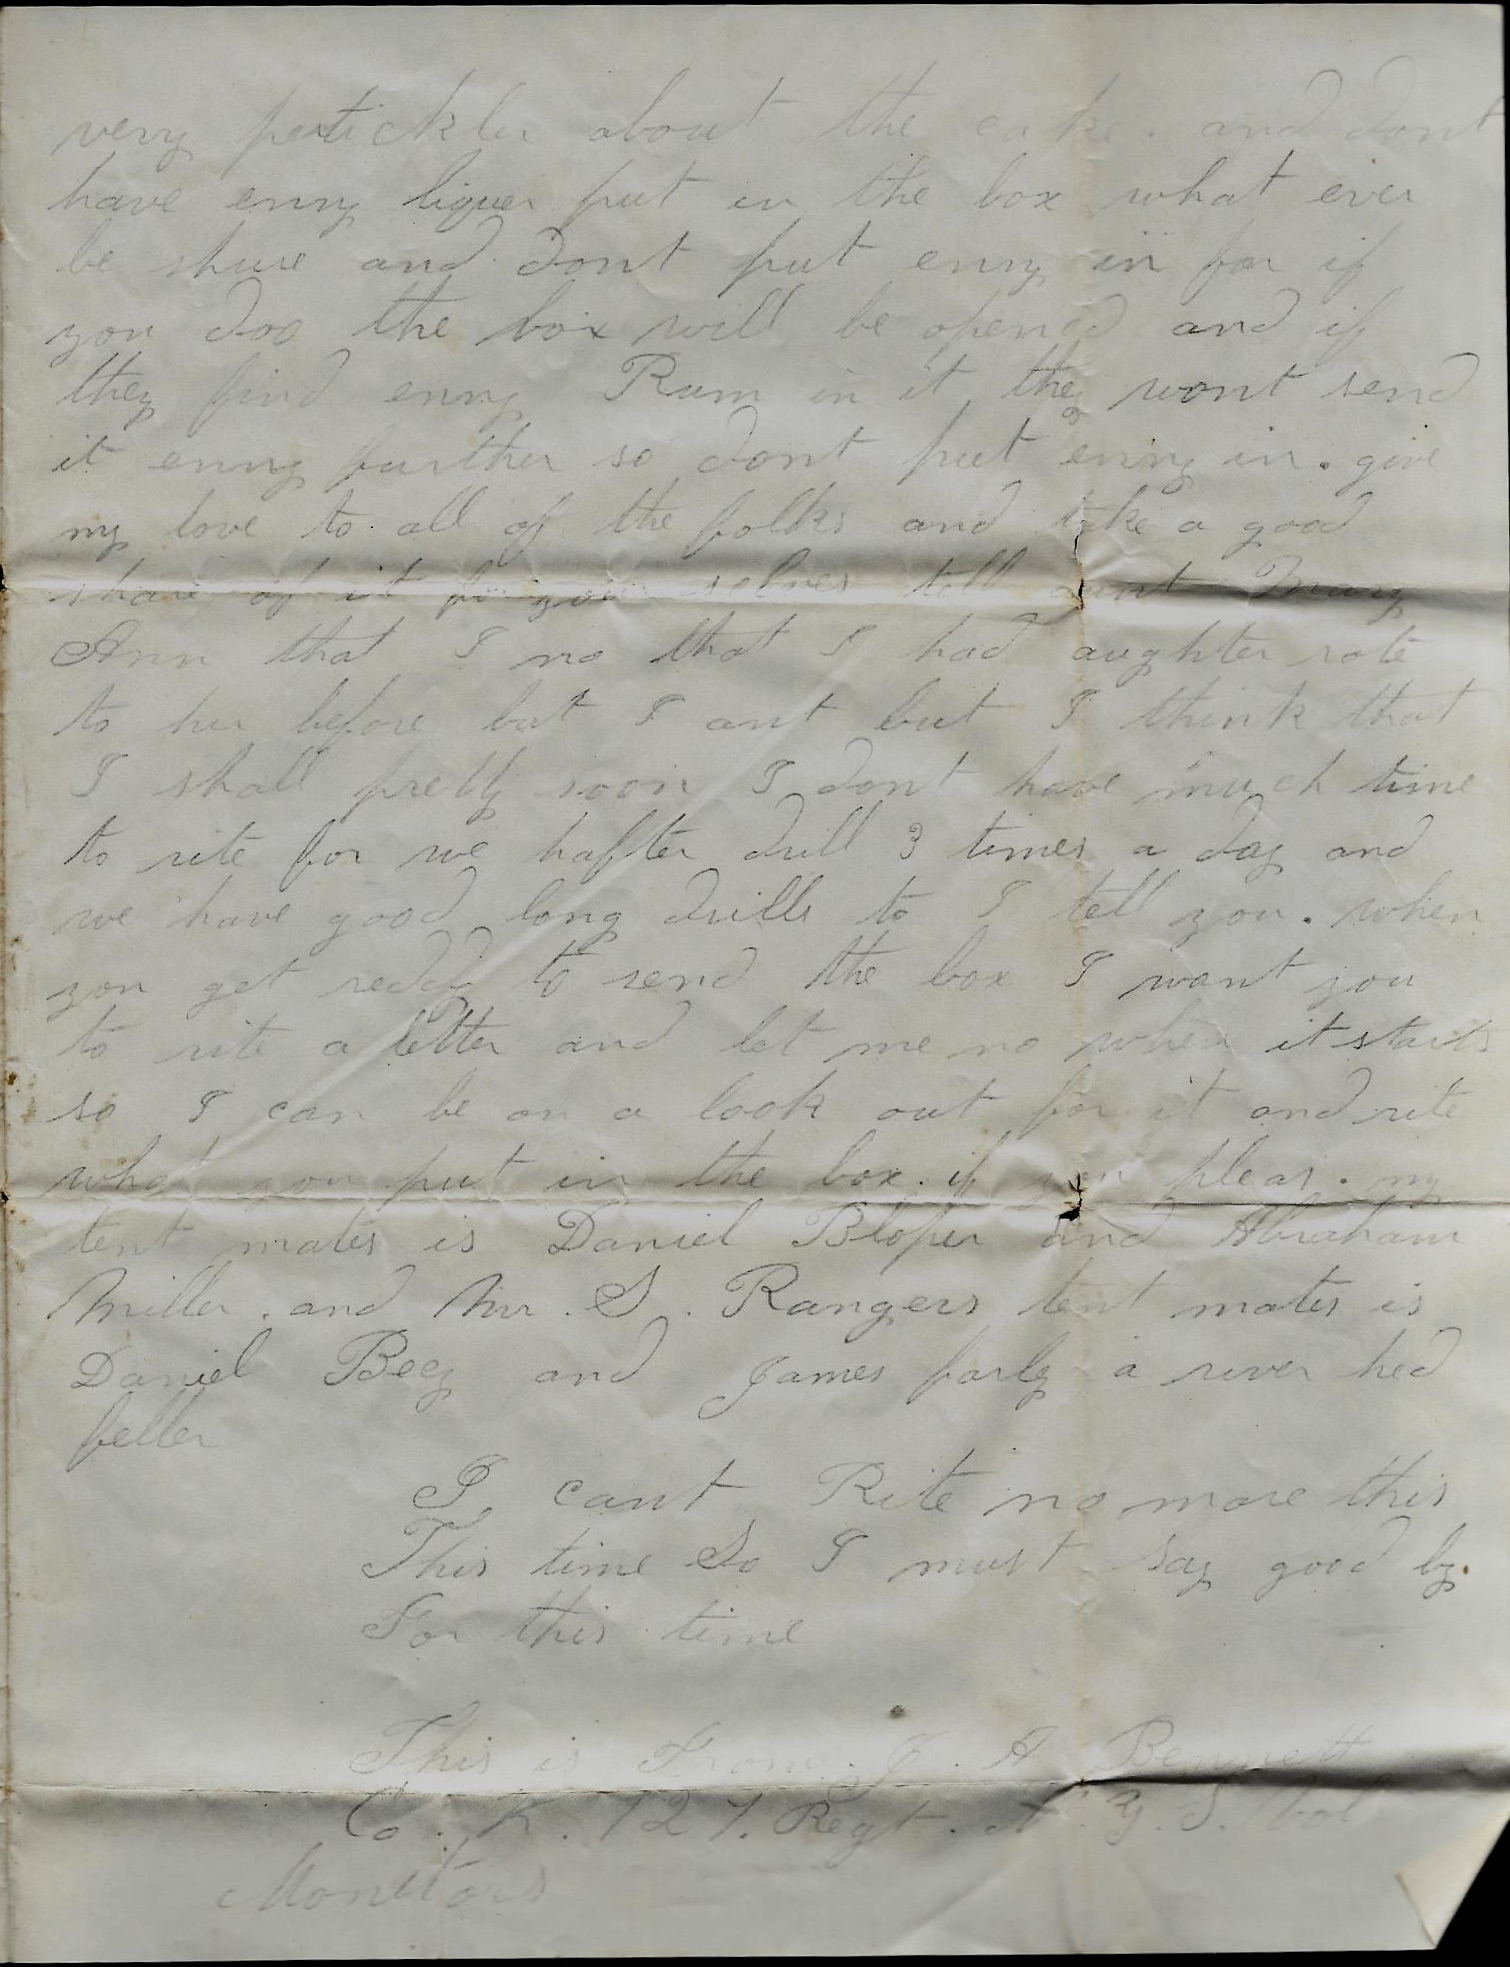 very pertickler about the cake. and dont
have enny liquer put in the box what ever
be shure and dont put enny in for if
you doo the box will be opened and if
they find enny Rum in it they wont send
it enny further so dont put enny in. give
my love to all of the folks and take a good
share of it for your selves tell aunt Mary
Ann that I no that I had aughter rote
to her before but I ant but I think that
I shall pretty soon I dont have much time
to rite for we hafter drill 3 times a day and
we have good long drills to I tell you. when
you get reddy to send the box I want you
to rite a letter and let me no when it starts
so I can be on a look out for it and rite
what you put in the box. if you pleas. my
tent mates is Daniel Bloper and Abraham
Miller. and Mr. S. Rangers tent mates is
Daniel Beey and James farly a river hed
feller
I, cant Rite no more this
This time So I must say good by.
For this time
This is From. J. A. Bennett
Co. K. 127. Regt. N. Y. S. Vol
Monitors